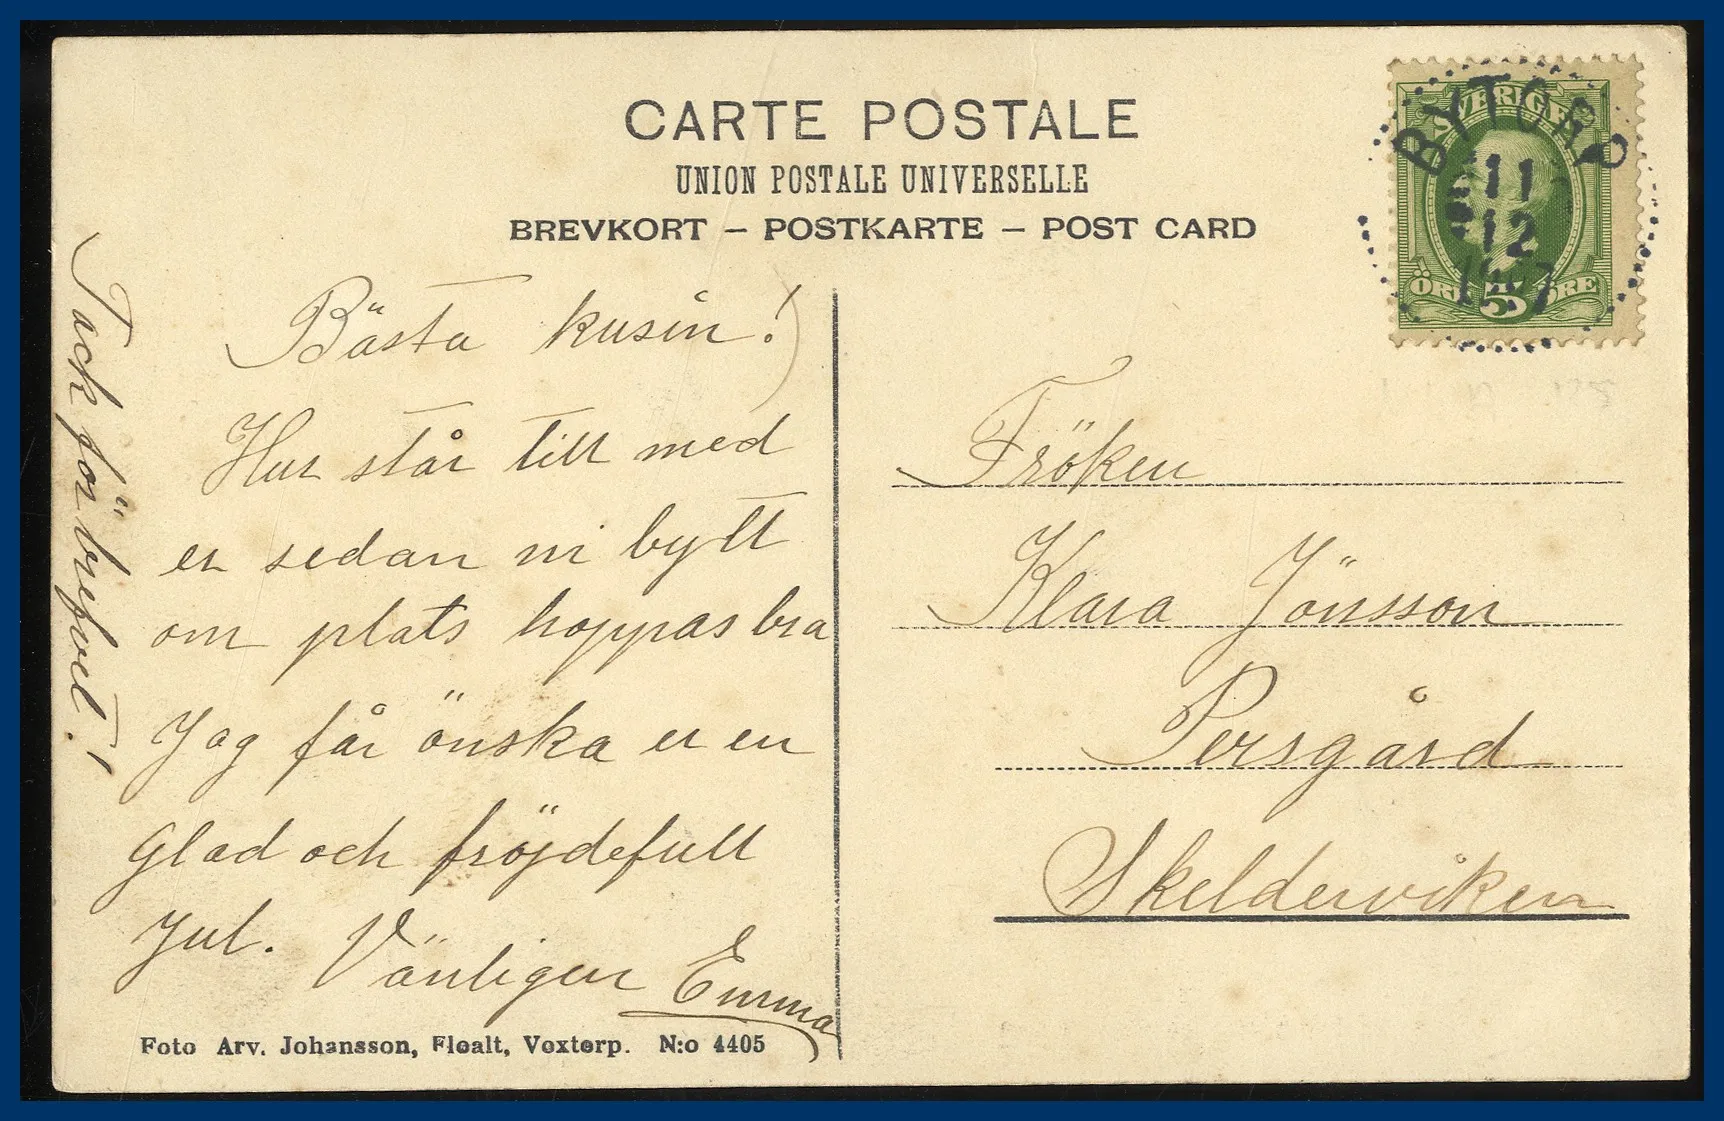 CARTE POSTALE
UNION POSTALE UNIVERSELLE
BREVKORT — POSTKARTE — POST CARD
SVERIGE
BYTORP
11
12
ÖRE 5 ÖRE
Bästa kusin!
Hur står till med
er sedan ni bytt
om plats hoppas bra
Jag får önska er en
glad och fröjdefull
Jul. Vänligen Emma
Tack för brefvet!
Fröken
Klara Jönsson
Persgård
Skelderviken
Foto Arv. Johansson, Fløalt, Voxtorp. N:o 4405